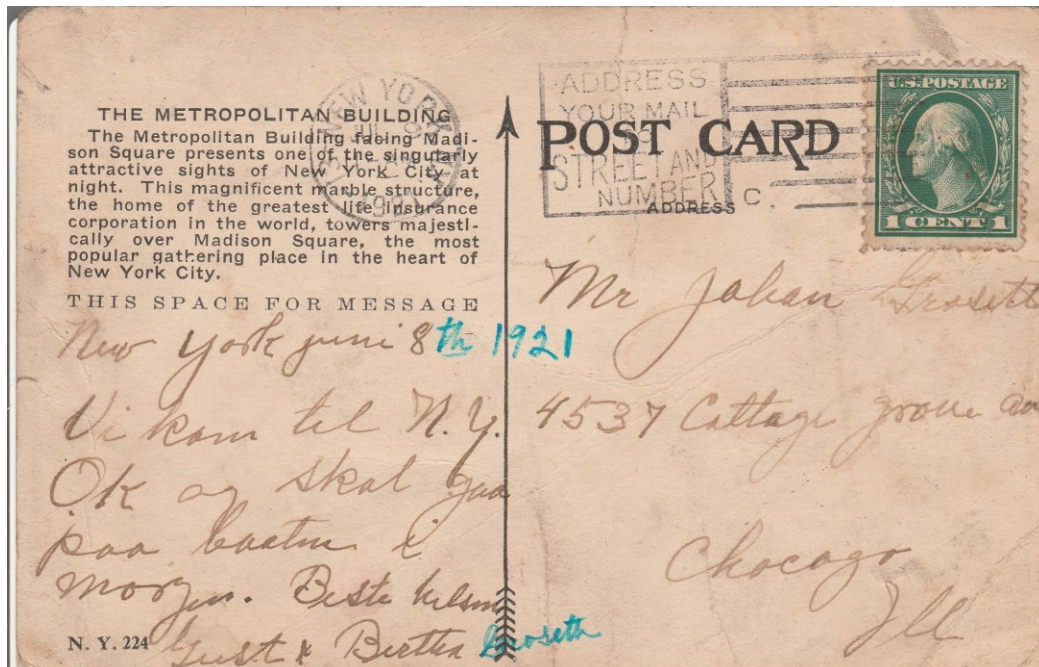 THE METROPOLITAN BUILDING
The Metropolitan Building facing Madi-
son Square presents one of the singularly
attractive sights of New York City at
night. This magnificent marble structure,
the home of the greatest life insurance
corporation in the world, towers majesti-
cally over Madison Square, the most
popular gathering place in the heart of
New York City.
THIS SPACE FOR MESSAGE
New York juni 8th 1921
Vi kom til N.Y.
Ok og skal gaa
paa baaten i
morgen. Beste hilsen
Gust & Bertha Groseth
N. Y. 224
NEW YORK, N.Y.
ADDRESS
YOUR MAIL
TO
STREET AND
NUMBER
C.
POST CARD
ADDRESS
U.S. POSTAGE
1 CENT 1
Mr Johan Grosett
4537 Cottage grove av
Chocago
Ill